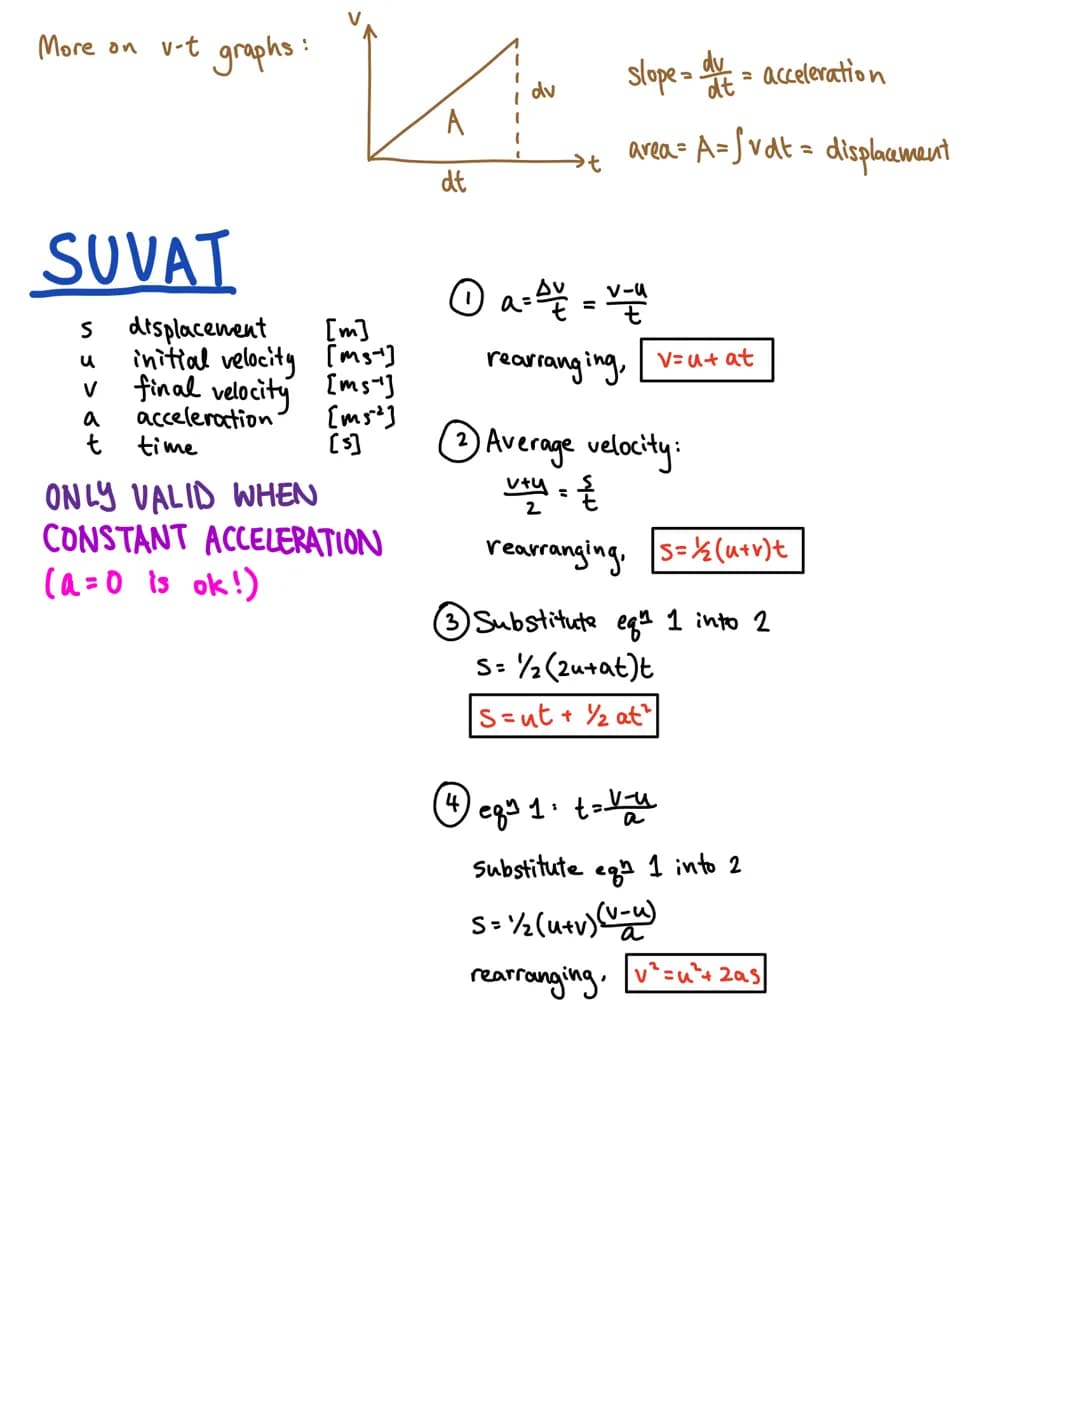 More on v-t graphs:
v
A
dv
dt
t
slope = dv/dt = acceleration
area = A = ∫vdt = displacement
SUVAT
s displacement [m]
u initial velocity [ms⁻¹]
v final velocity [ms⁻¹]
a acceleration [ms⁻²]
t time [s]
ONLY VALID WHEN
CONSTANT ACCELERATION
(a=0 is ok!)
① a = Δv/t = v-u/t
rearranging, v=u+at
② Average velocity:
v+u/2 = s/t
rearranging, s=½(u+v)t
③ Substitute eqn 1 into 2
s= ½(2u+at)t
s=ut + ½ at²
④ eqn 1: t= v-u/a
substitute eqn 1 into 2
s= ½(u+v)(v-u)/a
rearranging, v²=u²+2as